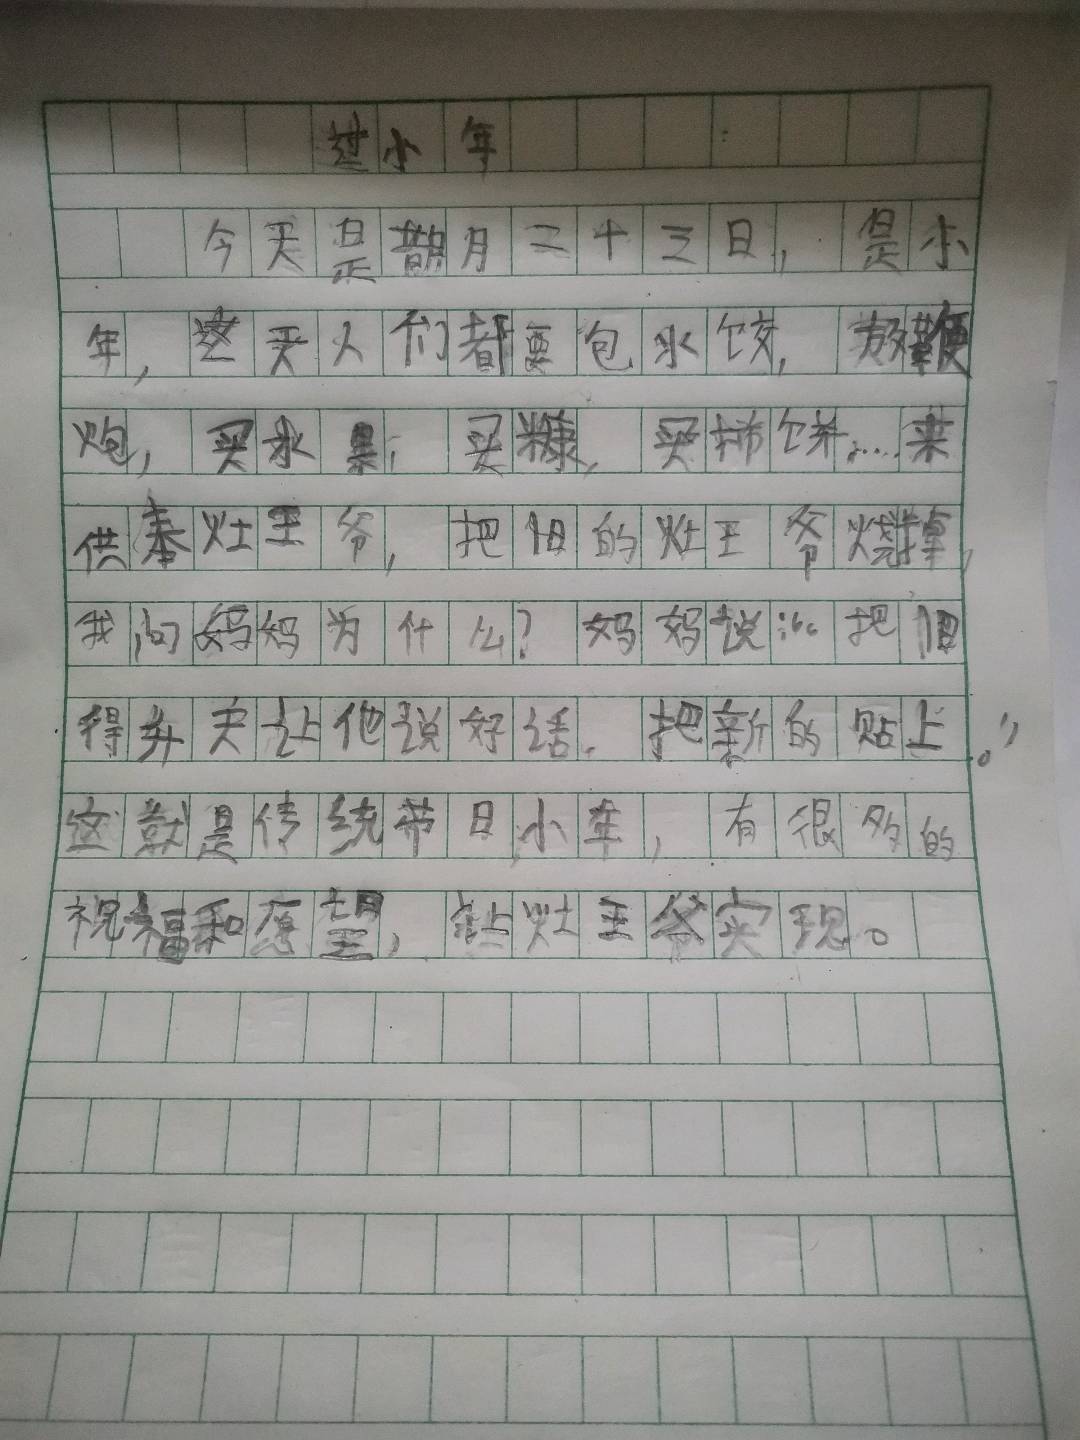 过小年
今天是腊月二十三日，是小
年，这天人们都要包水饺，放鞭
炮，买水果，买糖，买烧饼……来
供奉灶王爷，把旧的灶王爷烧掉，
我问妈妈为什么？妈妈说：“把旧
得升天让他说好话。把新的贴上。”
这就是传统节日小年，有很多的
祝福和愿望，让灶王爷实现。